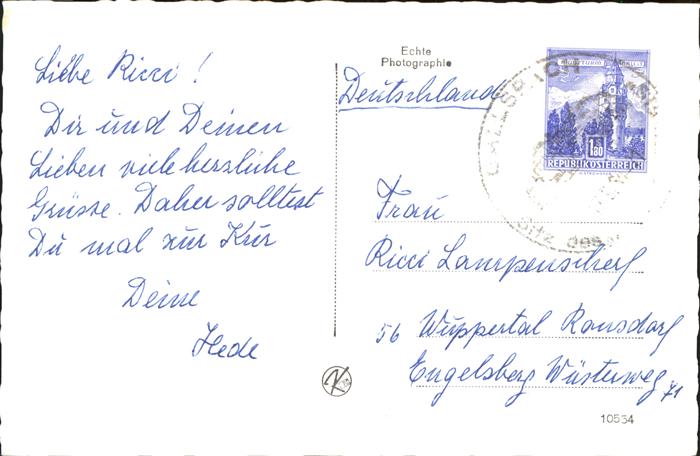 Liebe Ricci!
Dir und Deinen
Lieben viele herzliche
Grüsse. Daher solltest
Du mal zur Kur
Deine
Hede
Echte
Photographie
Deutschland
GALLSPACH
Sitz des
1.80
REPUBLIK ÖSTERREICH
Frau
Ricci Lampenscherf
56 Wuppertal Ronsdorf
Engelsberg Wüsterweg 71
10534